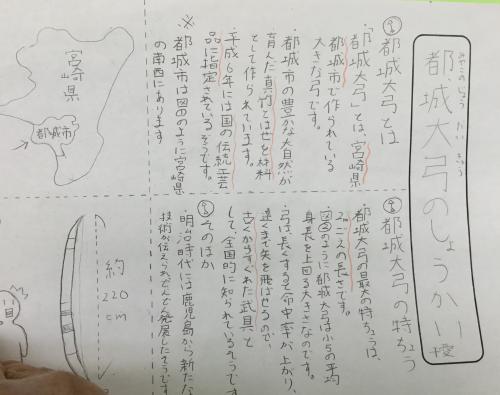 みやこのじょう だい きゅう
都城大弓のしょうかい
都城大弓とは
「都城大弓」とは、宮崎県
都城市で作られている
大きな弓です。
都城市の豊かな大自然が
育んだ真竹とはぜを材料
として作られています。
平成6年には国の伝統工芸
品に指定されているそうです。
※都城市は図のように宮崎県
の南西にあります
宮崎県
都城市
都城大弓の特ちょう
都城大弓の最大の特ちょうは、
長さです。
図②のように都城大弓は小5の平均
身長を上回る大きさなのです。
弓は長くすると命中率が上がり、
遠くまで矢を飛ばせるので、
古くからすぐれた武具と
して、全国的に知られているそうです
そのほか
明治時代には鹿児島から新たな
技術が伝えられぜんぜん発展したそうです
約
220
cm